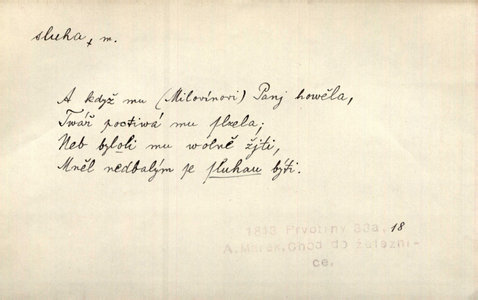 sluha, m.
A když mu (Milovínovi) Panj howěla,
Twář poctiwá mu
Neb byloli mu wolně žjti,
Mněl nedbalým se sluhau býti.
1813 Prvotiny 83a, 18
A. Marek. Chod do železni-
ce.